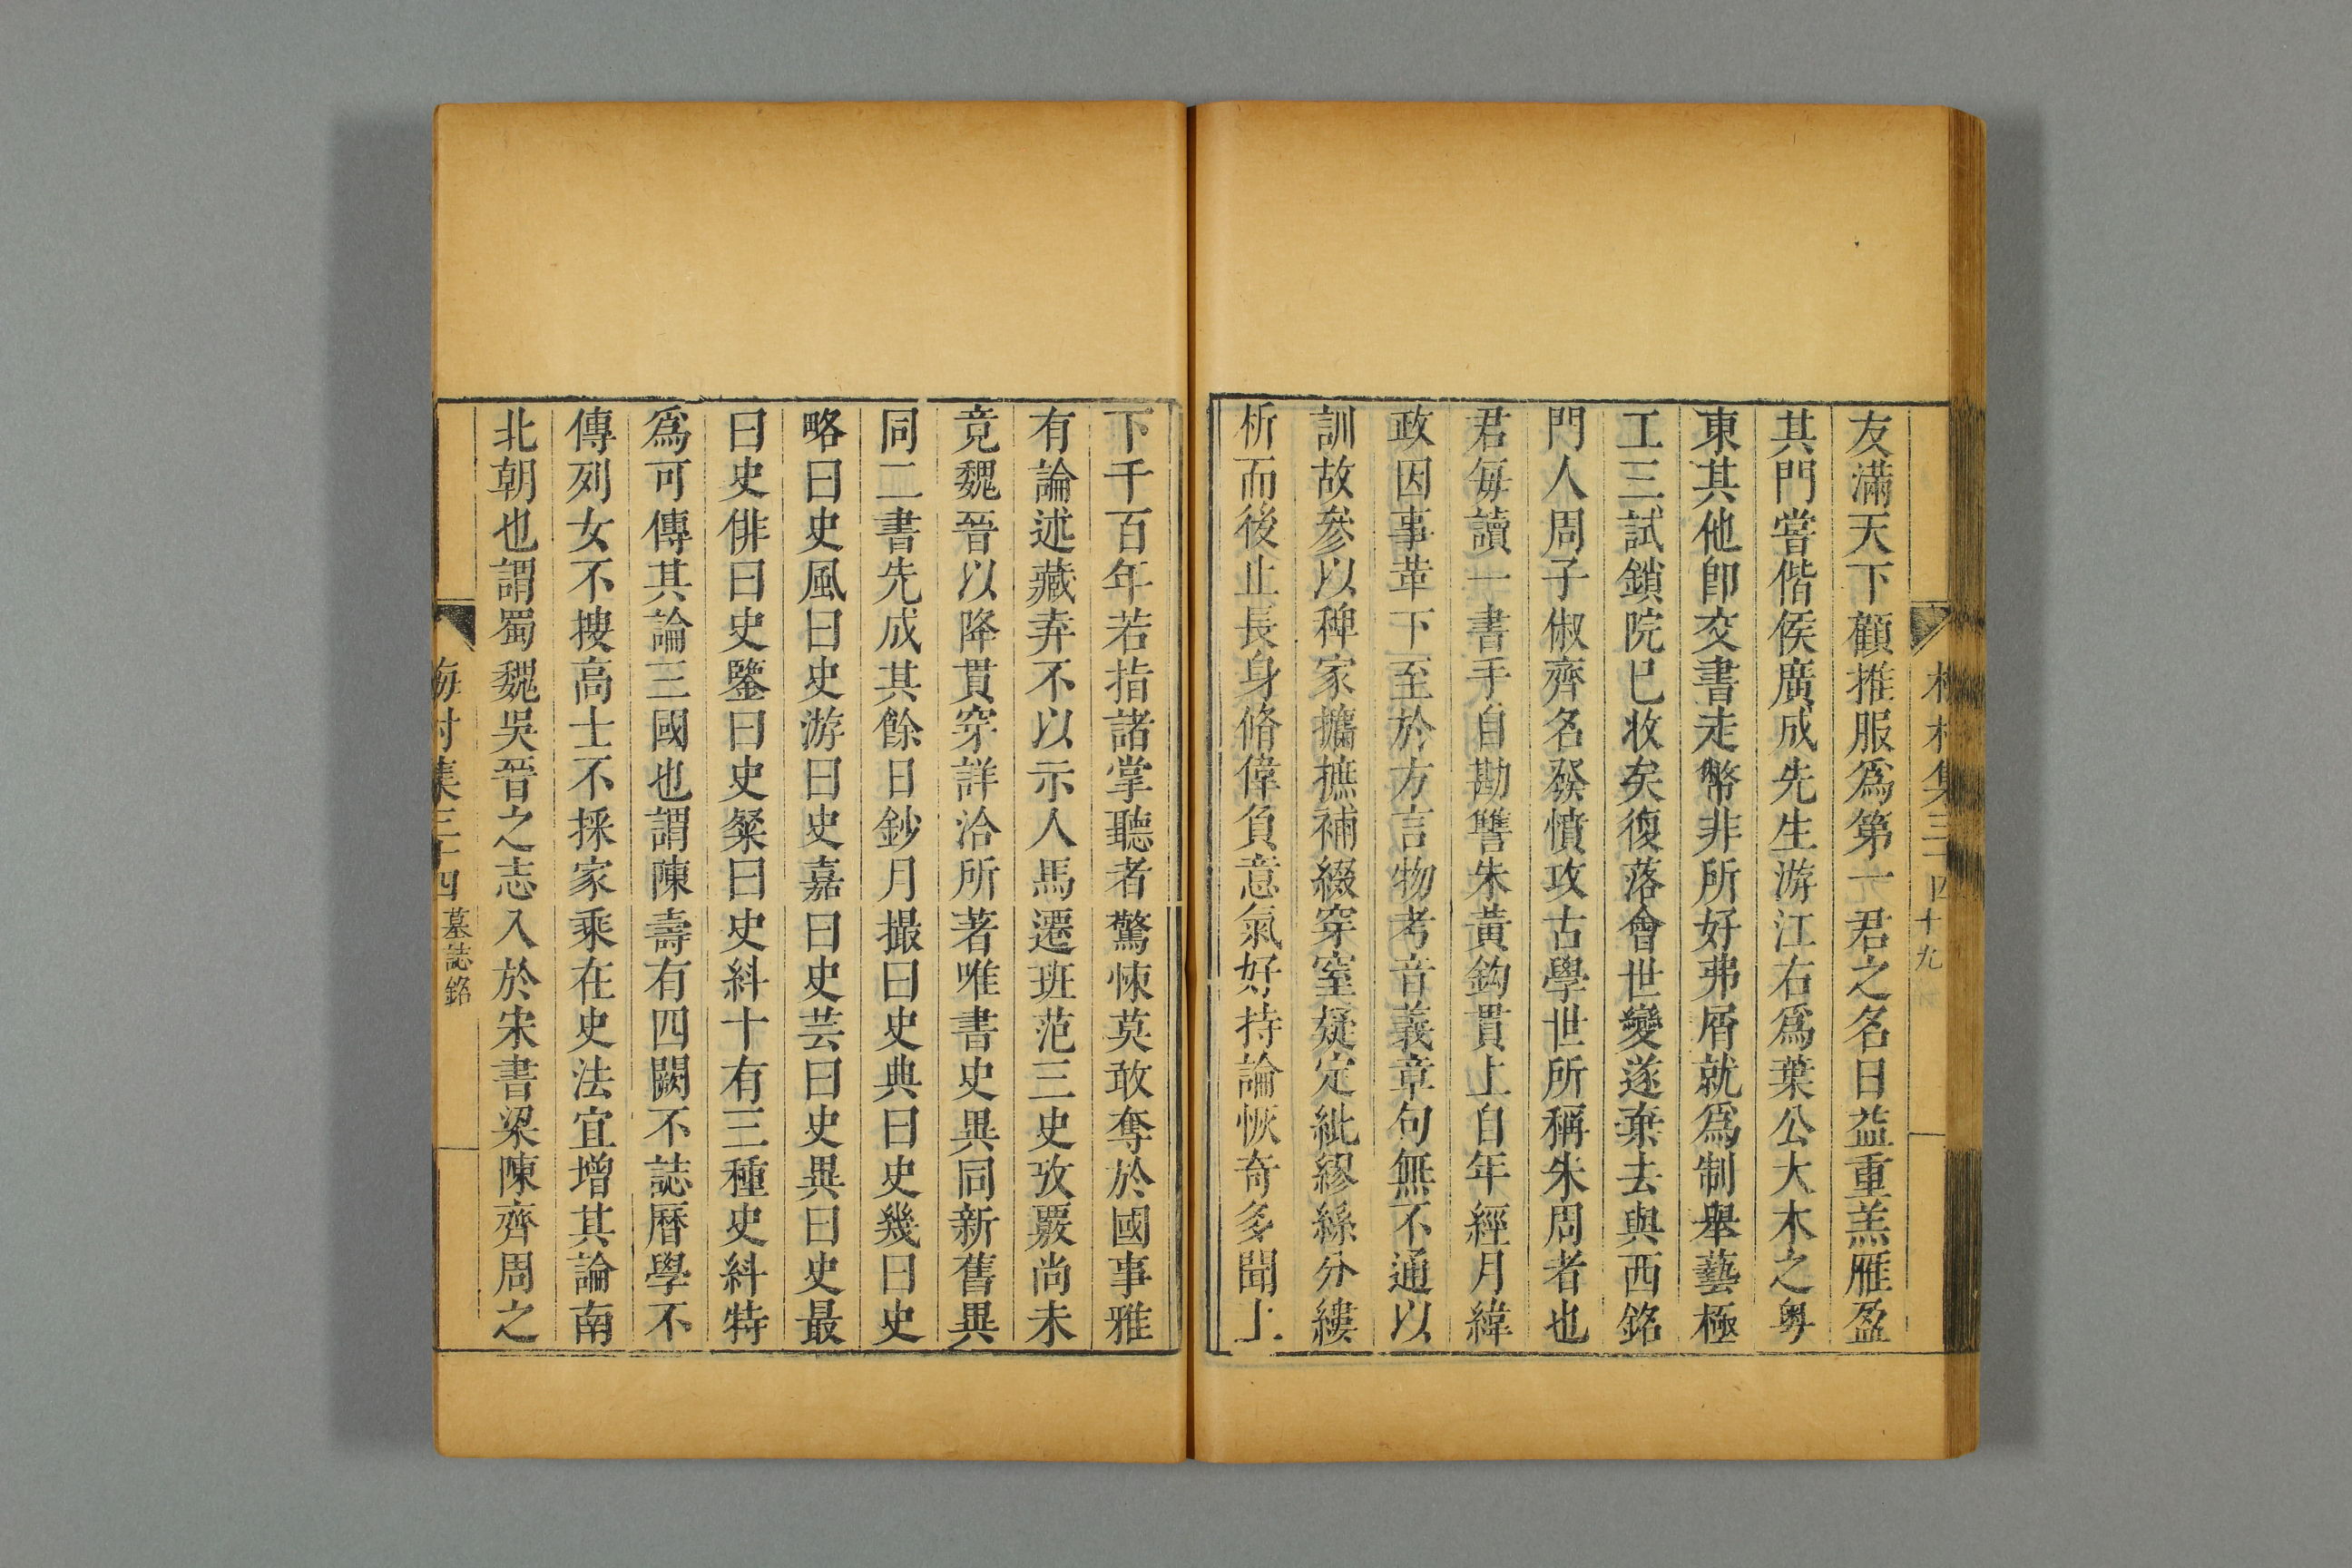 梅村集三十四 十九
友滿天下顧推服爲第一君之名日益重羔雁盈
其門嘗偕侯廣成先生游江右爲葉公大木之粵
東其他卽交書走幣非所好弗屑就爲制舉藝極
工三試鎖院已收矣復落會世變遂棄去與西銘
門人周子俶齊名發憤攻古學世所稱朱周者也
君每讀一書手自勘讐朱黃鉤貫上自年經月緯
政因事革下至於方言物考音義章句無不通以
訓故參以稗家攟摭補綴穿窒疑定紕繆絲分縷
析而後止長身脩偉負意氣好持論恢奇多聞上
下千百年若指諸掌聽者驚悚莫敢奪於國事雅
有論述藏弆不以示人馬遷班范三史攷覈尚未
竟魏晉以降貫穿詳洽所著唯書史異同新舊異
同二書先成其餘日鈔月撮曰史典曰史幾曰史
略曰史風曰史游曰史嘉曰史芸曰史異曰史最
曰史俳曰史鑒曰史粲曰史糾十有三種史糾特
爲可傳其論三國也謂陳壽有四闕不誌曆學不
傳列女不摟高士不採家乘在史法宜增其論南
北朝也謂蜀魏吳晉之志入於宋書梁陳齊周之
梅村集三十四 墓誌銘